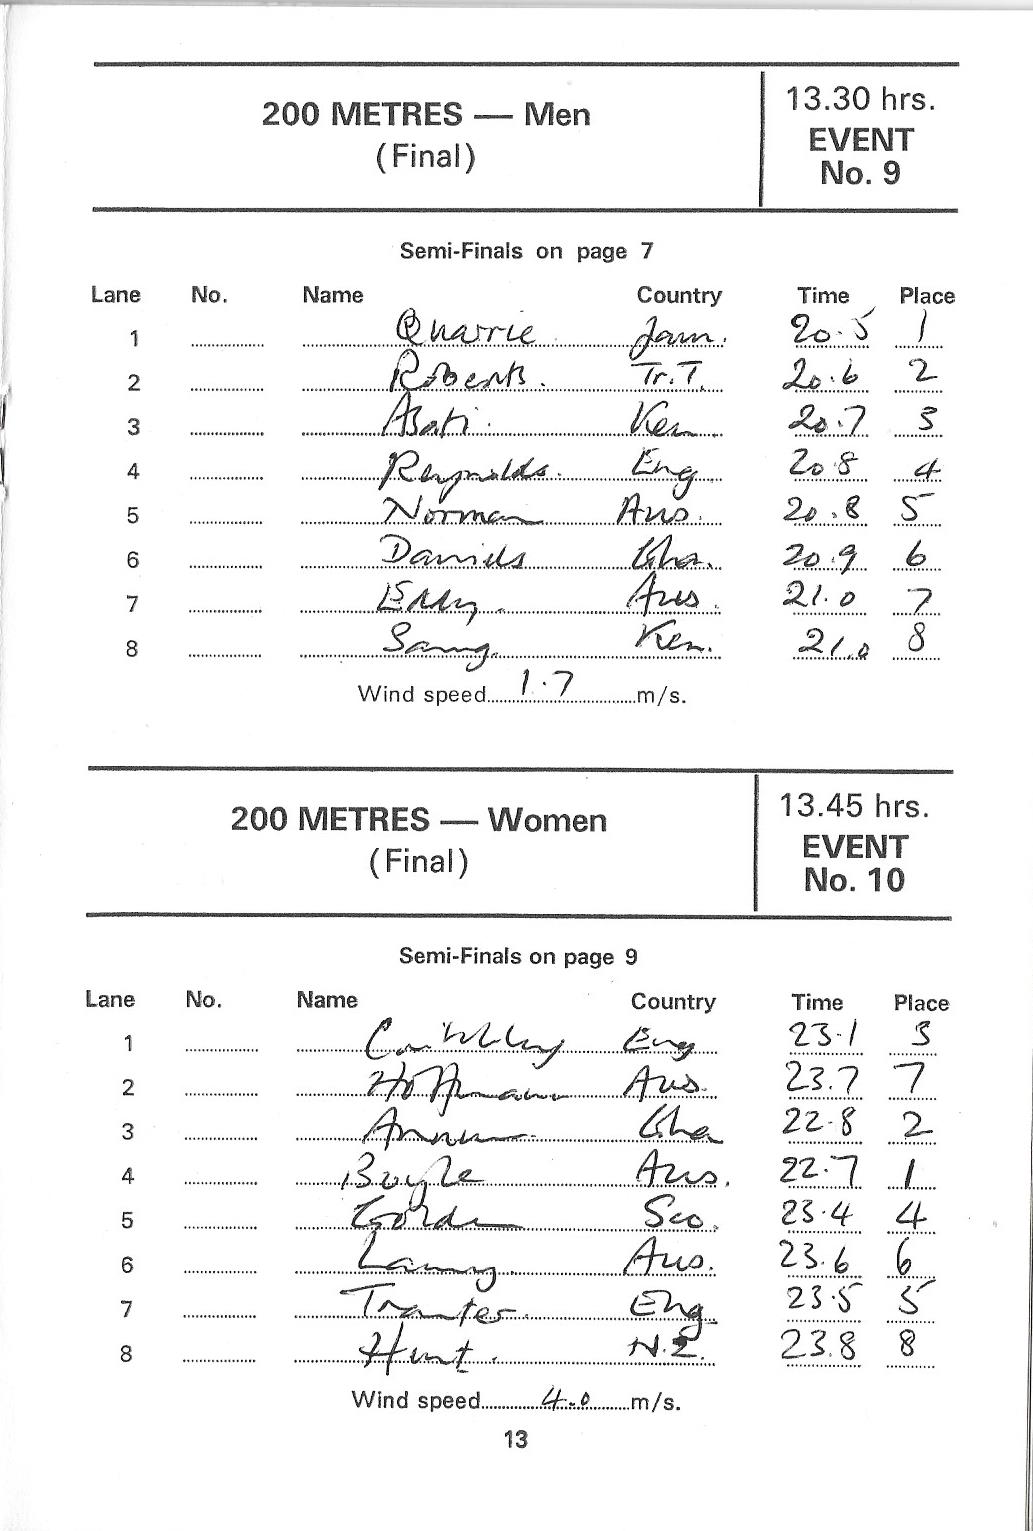 200 METRES — Men
(Final)
13.30 hrs.
EVENT
No. 9
Semi-Finals on page 7
Lane No. Name Country Time Place
1 Quarrie Jam. 20.5 1
2 Roberts. Tr.T. 20.6 2
3 Asati. Ken. 20.7 3
4 Reynolds. Eng 20.8 4
5 Norman Aus. 20.8 5
6 Daniels Gha. 20.9 6
7 Eddy. Aus. 21.0 7
8 Sang. Ken. 21.0 8
Wind speed 1.7 m/s.
200 METRES — Women
(Final)
13.45 hrs.
EVENT
No. 10
Semi-Finals on page 9
Lane No. Name Country Time Place
1 Eng 23.1 3
2 Hoffmann Aus. 23.7 7
3 Annum Gha 22.8 2
4 Boyle Aus. 22.7 1
5 Golden Sco. 23.4 4
6 Aus. 23.6 6
7 Tranter. Eng 23.5 5
8 Hunt. N.Z. 23.8 8
Wind speed 4.0 m/s.
13